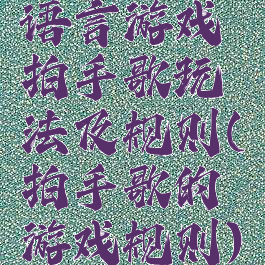 语言游戏
拍手歌玩
法及规则(
拍手歌的
游戏规则)